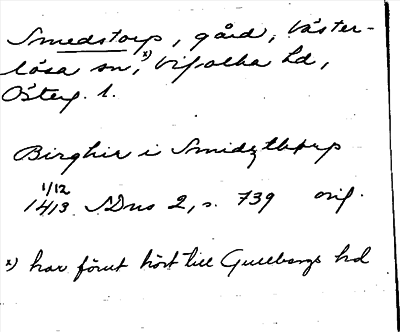 Smedstorp, gård, Väster-
lösa sn,x) Vifolka hd,
Österg. l.
Birghir i Smidzthorp
1/12
1413 SDns 2, s. 739 orig.
x) har förut hört till Gullbergs hd